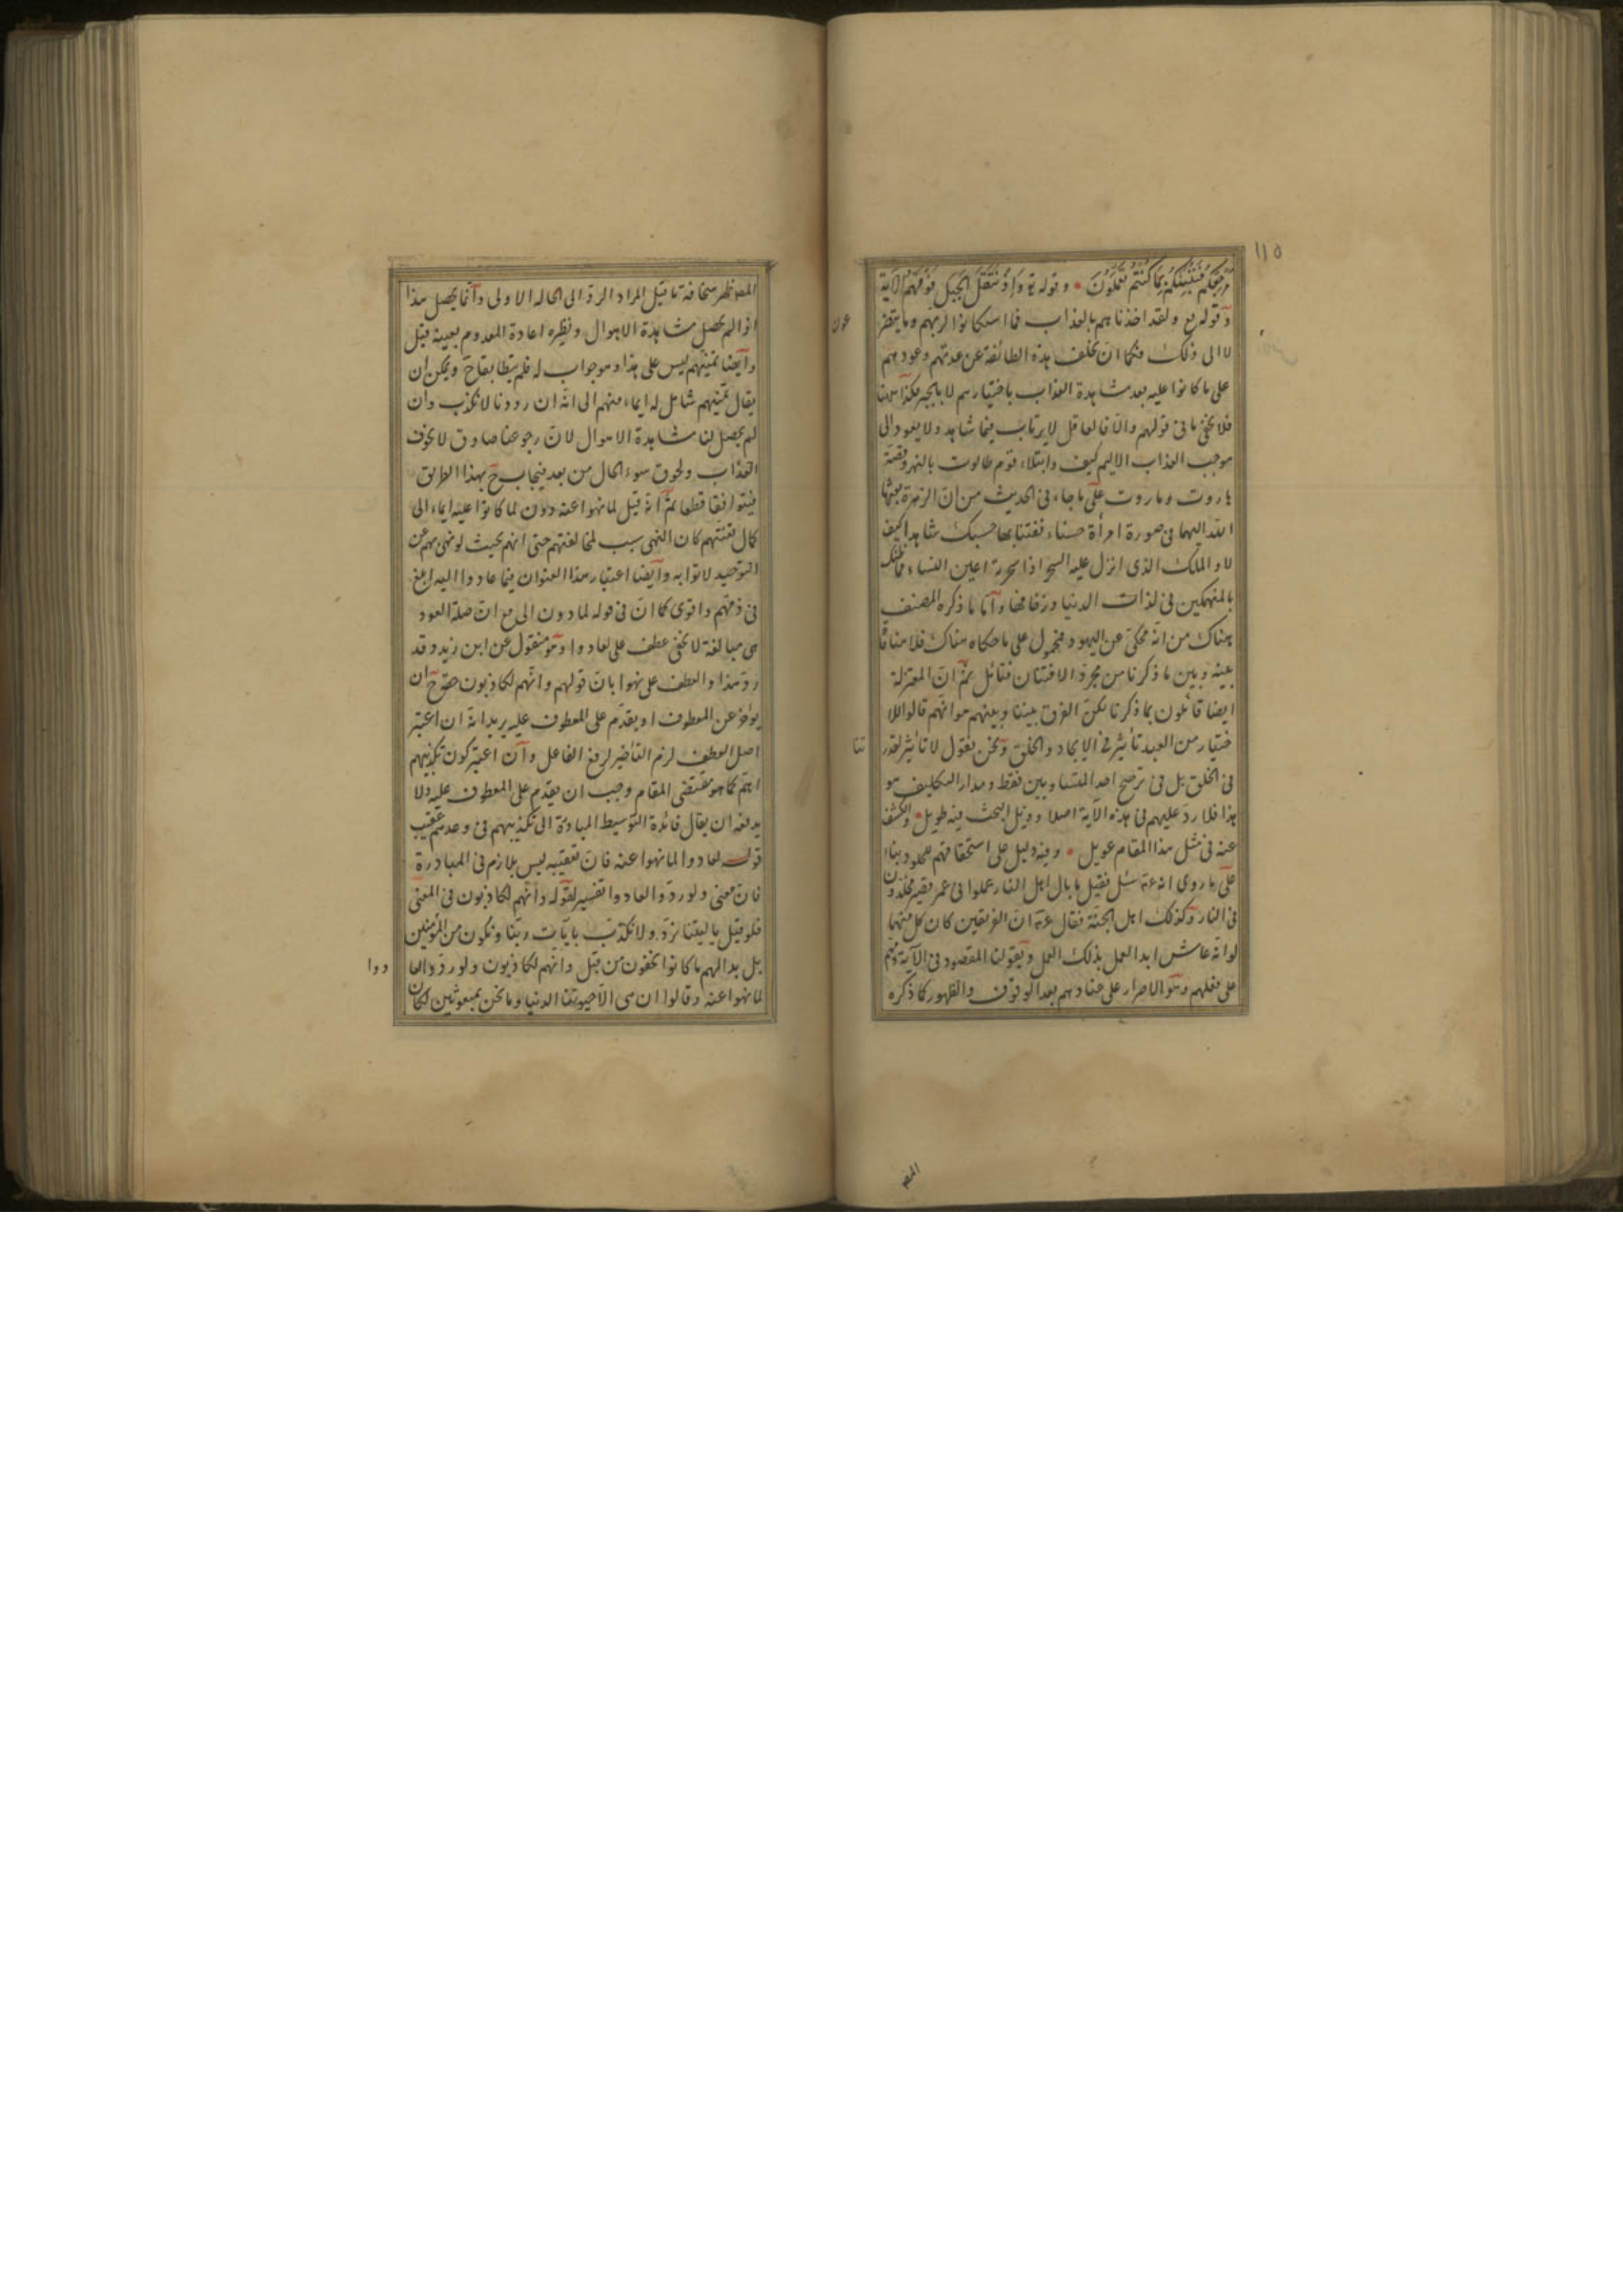 ١١٥
مرجعكم فننبئكم بما كنتم تعملون وقوله تع واذ نتقنا الجبل فوقهم الآية
وقوله تع ولقد اخذناهم بالعذاب فما استكانوا لربهم وما يتضر
عون
لا الى ذلك فكما ان تخلف هذه الطائفة عن عدتهم وعودهم
على ما كانوا عليه بعد مشاهدة العذاب باختيارهم لا بالجبر هكذا هنا
فلا يخفى ما فى قولهم والا فالعاقل لا يرتاب فيما شاهد ولا يعود الى
موجب العذاب الاليم كيف وابتلاء قوم طالوت بالنهر وقصة
هاروت وماروت على ما جاء فى الحديث من ان الزهرة بعثها
الله اليهما فى صورة امرأة حسناء ففتنا بها حسبك شاهدا كيف
لا والملك الذى انزل عليه السحر اذا سحرته اعين النساء فما ظنك
بالمنهمكين فى لذات الدنيا وزخارفها واما ما ذكره المصنف
هناك من انه محكى عن اليهود فمحمول على ما حكاه هناك فلا منافاة
بينه وبين ما ذكرنا من مجرد الافتتان فتأمل ثم ان المعتزلة
ايضا قائلون بما ذكرنا لكن الفرق بيننا وبينهم هو انهم قالوا للا
ختيار من العبد تأثير فى الايجاد والخلق ونحن نقول لا تأثير لقدر
تنا
فى الخلق بل فى ترجيح احد المتساويين فقط ومدار التكليف هو
هذا فلا رد عليهم فى هذه الآية اصلا وذيل البحث فيه طويل والكشف
عنه فى مثل هذا المقام عويل وفيه دليل على استحقاقهم للخلود بناء
على ما روى انه عم سئل فقيل ما بال اهل النار عملوا فى عمر قصير مخلدون
فى النار وكذلك اهل الجنة فقال عم ان الفريقين كان كل منهما
لو انه عاش ابدا لعمل بذلك العمل وبقولنا المقصود فى الآية ذمهم
على فعلهم وهو الاصرار على عنادهم بعد الوقوف والظهور كما ذكره
المص
المص ظهر سخافة ما قيل المراد الرد الى الحالة الاولى وانما يحصل هذا
اذا لم يحصل مشاهدة الاهوال ونظيره اعادة المعدوم بعينه قيل
وايضا تمنيهم ليس على هذا وهو جواب له فلم يتطابقا ح ويمكن ان
يقال تمنيهم شامل له ايماء منهم الى انه ان رددنا لا نكذب وان
لم يحصل لنا مشاهدة الاهوال لان رجوعنا صادق لا لخوف
العذاب ولحوق سوء الحال من بعد فيجاب ح بهذا الطريق
فيتوافقا قطعا ثم انه قيل لما نهوا عنه دون لما كانوا عليه ايماء الى
كمال تعنتهم كان النهى سبب لمخالفتهم حتى انهم بحيث لو نهى بهم عن
التوحيد لاتوا به وايضا اعتبار هذا العنوان فيما عادوا اليه ابلغ
فى ذمهم واقوى كما ان فى قوله لما دون الى مع ان صلة العود
هى مبالغة لا تخفى عطف على لعادوا وهو منقول عن ابن زيد وقد
رد هذا والعطف على نهوا بان قولهم وانهم لكاذبون حقه ح ان
يؤخر عن المعطوف او يقدم على المعطوف عليه يريد انه ان اعتبر
اصل العطف لزم التأخير لرفع الفاعل وان اعتبر كون تكذيبهم
اهم كما هو مقتضى المقام وجب ان يقدم على المعطوف عليه ولا
يدفعه ان يقال فائدة التوسيط المبادرة الى تكذيبهم فى وعدهم عقيب
قوله لعادوا لما نهوا عنه فان تعقيبه ليس بلازم فى المبادرة
فان معنى ولو ردوا لعادوا تفسير لقوله وانهم لكاذبون فى المعنى
فلو قيل يا ليتنا نرد ولا نكذب بآيات ربنا ونكون من المؤمنين
بل بدا لهم ما كانوا يخفون من قبل وانهم لكاذبون ولو ردوا لعا
دوا
لما نهوا عنه وقالوا ان هى الا حيوتنا الدنيا وما نحن بمبعوثين لكان